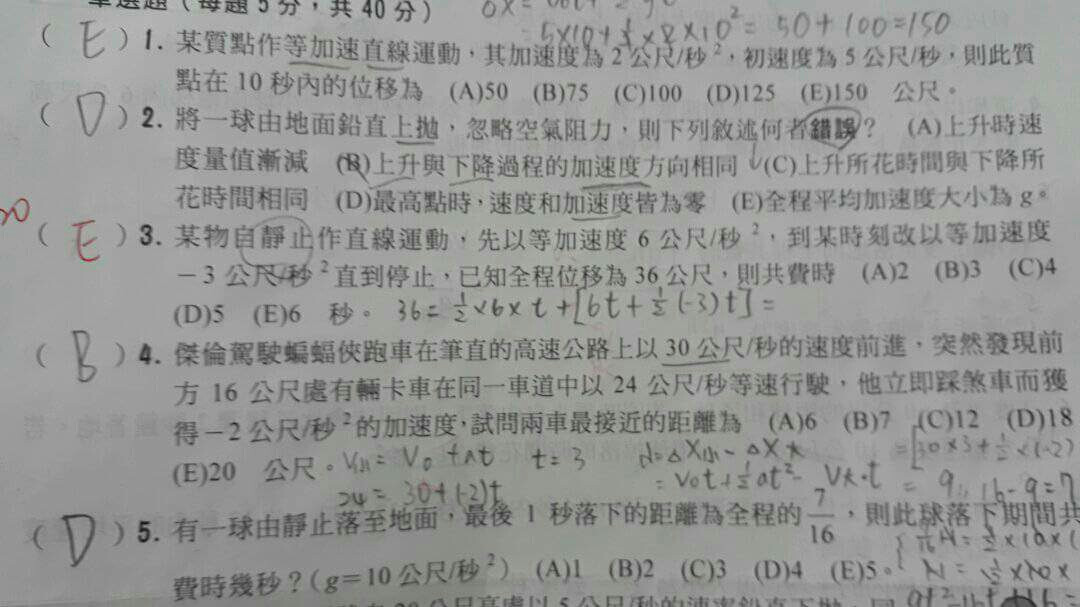 單選題（每題5分，共40分） ΔX=V0t+
=5×10+½×2×10²=50+100=150
（E）1. 某質點作等加速直線運動，其加速度為 2 公尺/秒²，初速度為 5 公尺/秒，則此質
點在 10 秒內的位移為 (A)50 (B)75 (C)100 (D)125 (E)150 公尺。
（D）2. 將一球由地面鉛直上拋，忽略空氣阻力，則下列敘述何者錯誤？ (A)上升時速
度量值漸減 (B)上升與下降過程的加速度方向相同 (C)上升所花時間與下降所
花時間相同 (D)最高點時，速度和加速度皆為零 (E)全程平均加速度大小為 g。
（E）3. 某物自靜止作直線運動，先以等加速度 6 公尺/秒²，到某時刻改以等加速度
－3 公尺/秒²直到停止，已知全程位移為 36 公尺，則共費時 (A)2 (B)3 (C)4
(D)5 (E)6 秒。 36=½×6×t+[6t+½(-3)t]=
（B）4. 傑倫駕駛蝙蝠俠跑車在筆直的高速公路上以 30 公尺/秒的速度前進，突然發現前
方 16 公尺處有輛卡車在同一車道中以 24 公尺/秒等速行駛，他立即踩煞車而獲
得－2 公尺/秒²的加速度，試問兩車最接近的距離為 (A)6 (B)7 (C)12 (D)18
(E)20 公尺。 =V0+at t=3 =[30×3+½×(-2)
24=30+(-2)t =V0t+½at²- ·t = 9 16-9=7
（D）5. 有一球由靜止落至地面，最後 1 秒落下的距離為全程的 7/16，則此球落下期間共
費時幾秒？(g=10 公尺/秒²) (A)1 (B)2 (C)3 (D)4 (E)5。
公尺高處以 5 公尺/秒的速率鉛直下拋，同